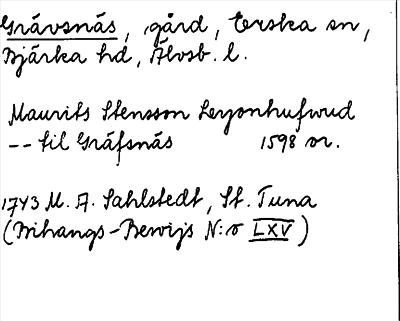 Grävsnäs, gård, Erska sn,
Bjärke hd, Älvsb. l.
Maurits Stensson Leyonhufwud
-- til Gräfsnäs 1598 or.
1743 M. A. Sahlstedt, St. Tuna
(Bihangs-Bewijs N:o LXV)